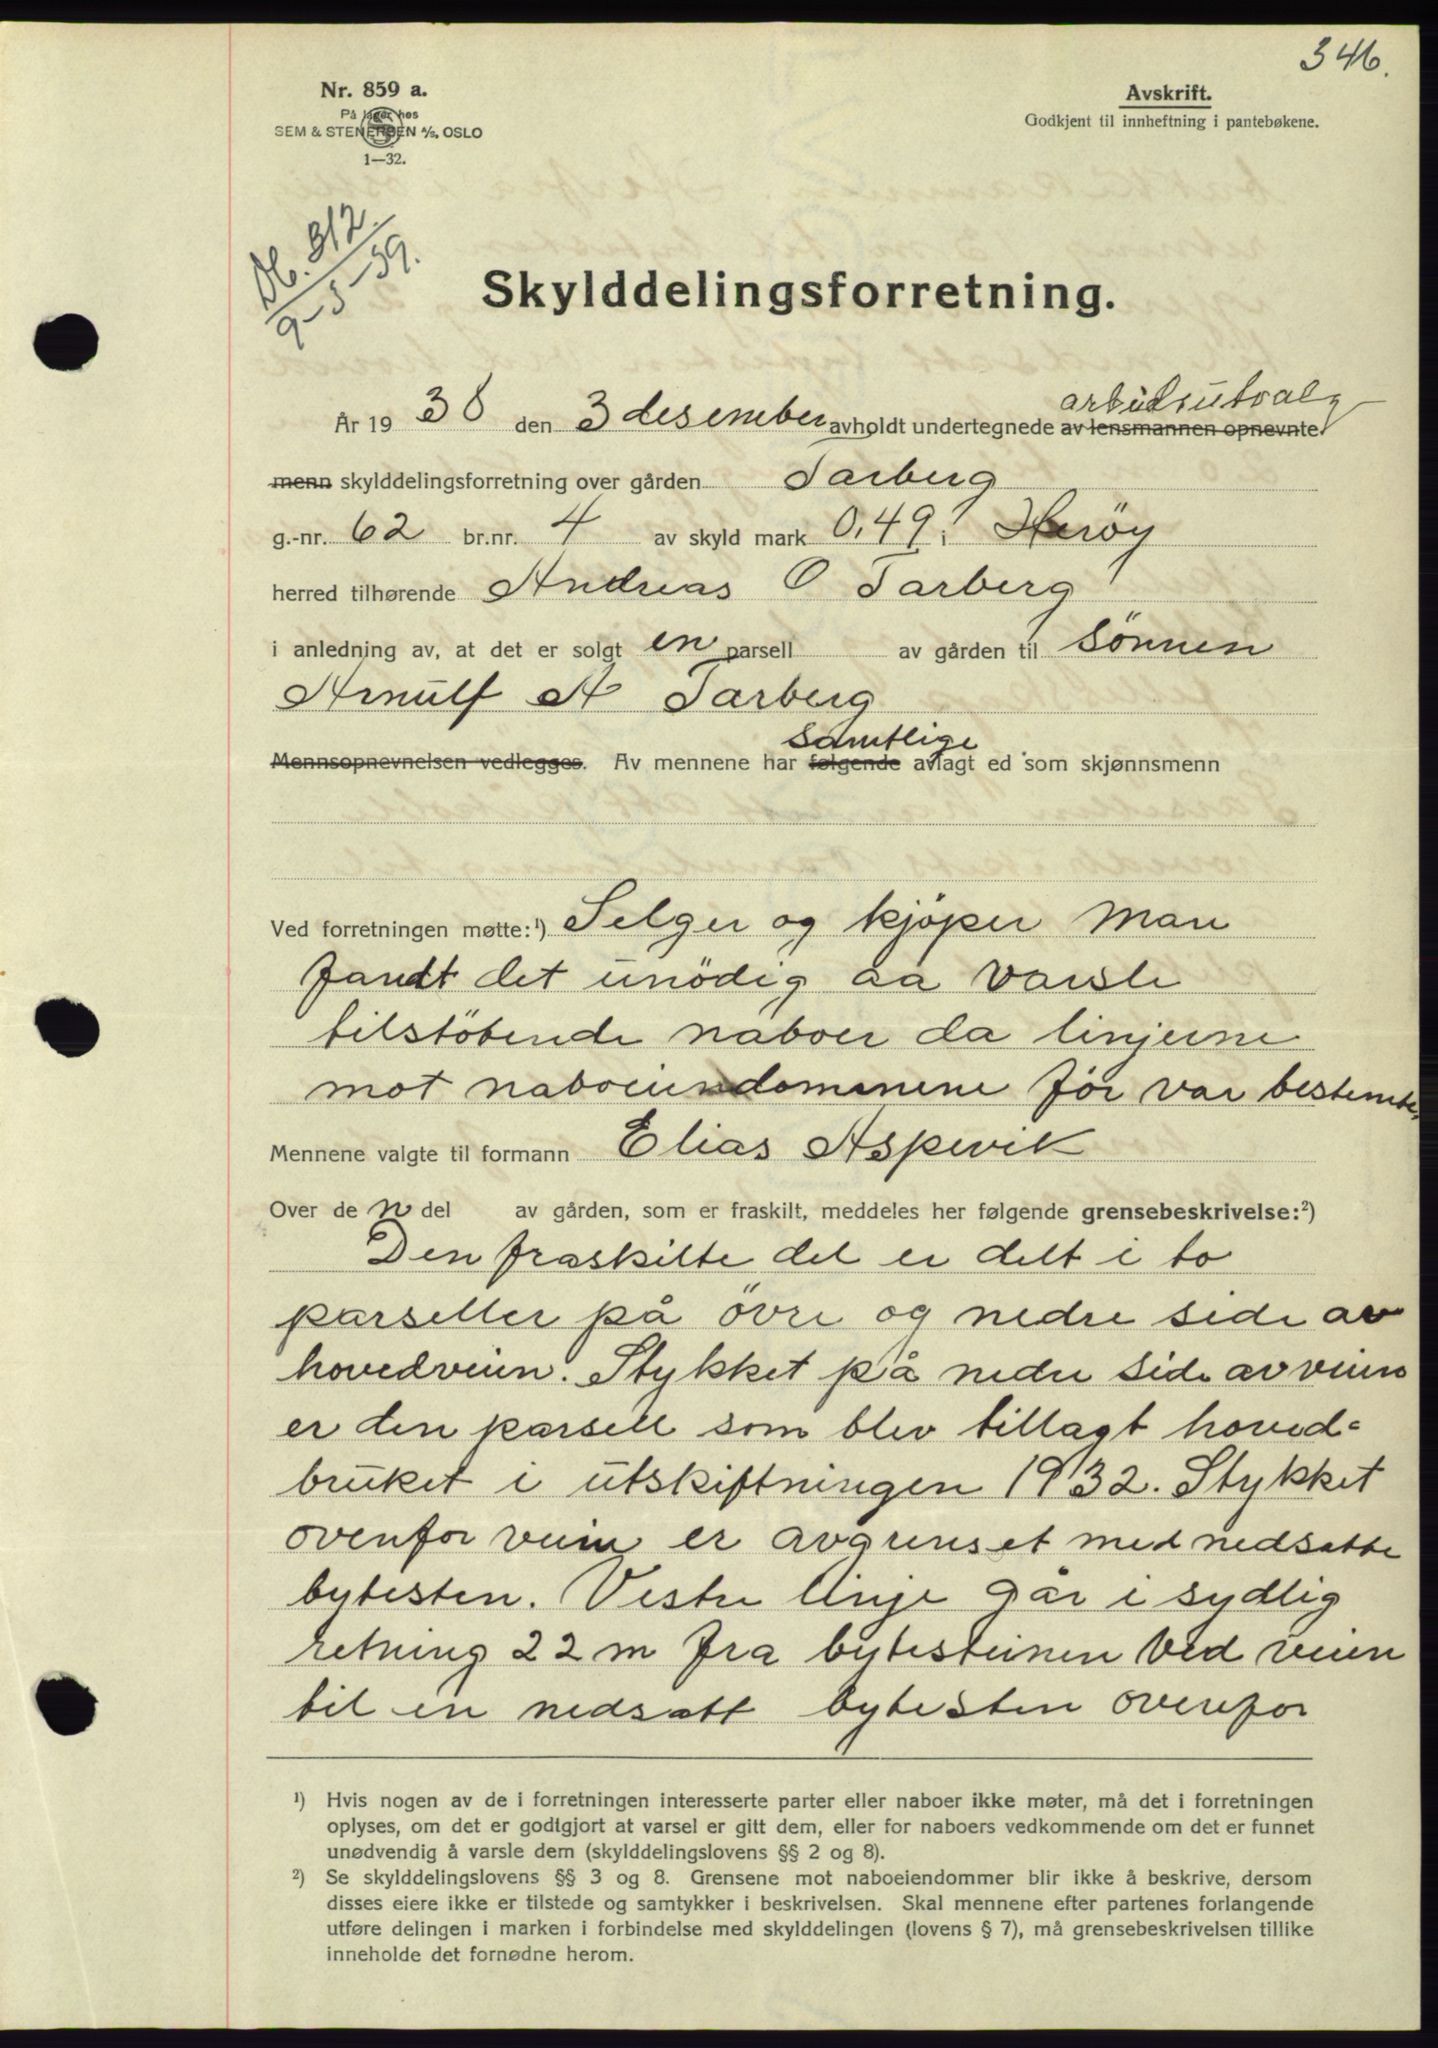 346.
Nr. 859 a.
På lager hos
SEM & STENERSEN A/S, OSLO
1—32.
Avskrift.
Godkjent til innheftning i pantebøkene.
Db. 312.
9-5-39.
Skylddelingsforretning.
arbeidsutvalg
År 19 38 den 3 desember avholdt undertegnede av lensmannen opnevnte
menn skylddelingsforretning over gården Tarberg
g.-nr. 62 br.nr. 4 av skyld mark 0,49 i Herøy
herred tilhørende Andreas O Tarberg
i anledning av, at det er solgt en parsell av gården til sönnen
Arnulf A Tarberg
samtlige
Mennsopnevnelsen vedlegges. Av mennene har følgende avlagt ed som skjønnsmenn
Ved forretningen møtte:¹) Selger og kjöper Man
fandt det unödig aa varsle
tilstötende naboer da linjerne
mot naboeiendommene för var bestemte
Mennene valgte til formann Elias Aspevik
Over de n del av gården, som er fraskilt, meddeles her følgende grensebeskrivelse:²)
Den fraskilte del er delt i to
parseller på övre og nedre side av
hovedveien. Stykket på nedre side av veien
er den parsell som blev tillagt hoved-
bruket i utskiftningen 1932. Stykket
ovenfor veien er avgrenset med nedsatte
bytesten. Vestre linje går i sydlig
retning 22 m fra bytesteinen ved veien
til en nedsatt bytesten ovenfor
¹) Hvis nogen av de i forretningen interesserte parter eller naboer ikke møter, må det i forretningen
oplyses, om det er godtgjort at varsel er gitt dem, eller for naboers vedkommende om det er funnet
unødvendig å varsle dem (skylddelingslovens §§ 2 og 8).
²) Se skylddelingslovens §§ 3 og 8. Grensene mot naboeiendommer blir ikke å beskrive, dersom
disses eiere ikke er tilstede og samtykker i beskrivelsen. Skal mennene efter partenes forlangende
utføre delingen i marken i forbindelse med skylddelingen (lovens § 7), må grensebeskrivelsen tillike
inneholde det fornødne herom.